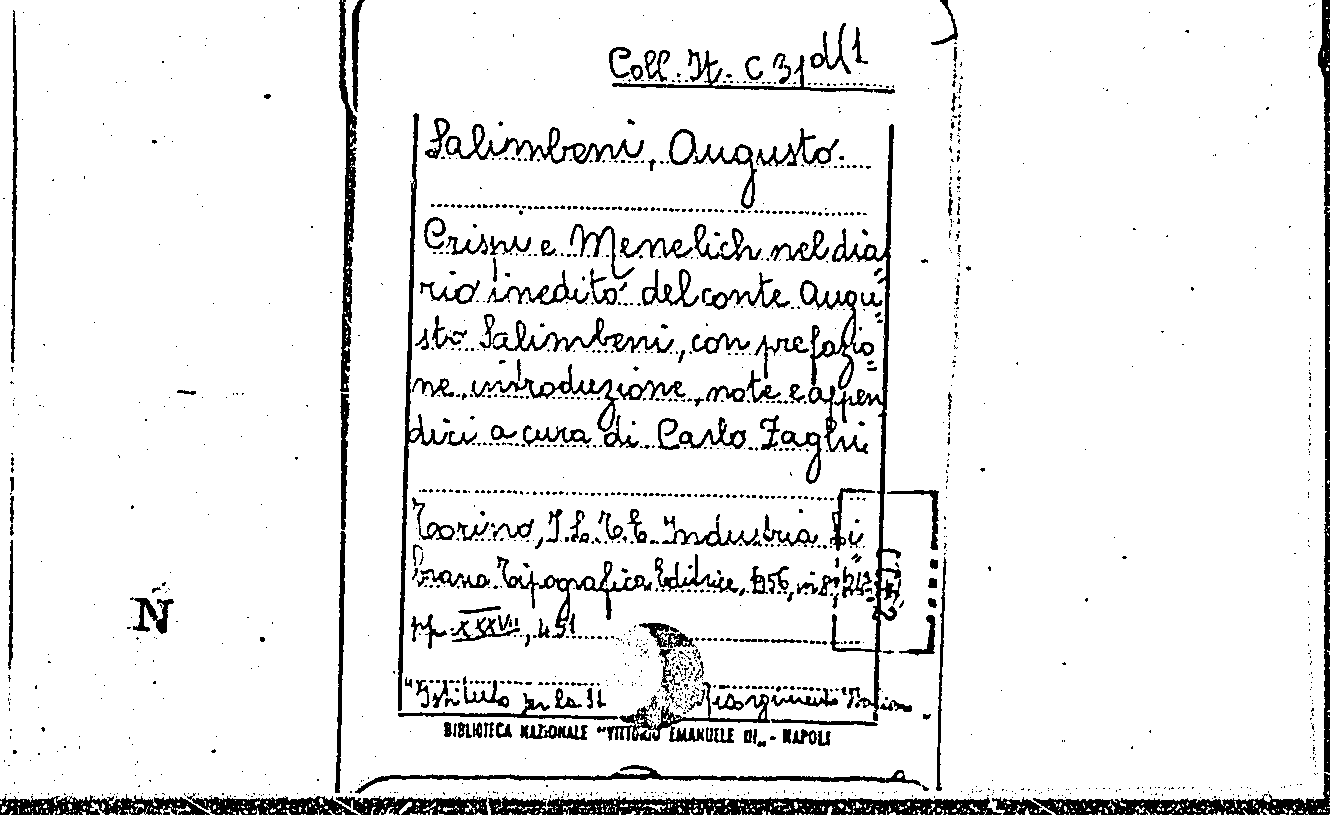 Coll. It. C 31 d(1
Salimbeni, Augusto.
Crispi e Menelich nel dia
rio inedito del conte Augu=
sto Salimbeni, con prefazio=
ne, introduzione, note e appen
dici a cura di Carlo Zaghi
Torino, I.L.T.E. Industria Li
braria Tipografica Editrice, 1956, in 8°
pp. XXXVII, 451
"Istituto per la St Risorgimento Italiano
BIBLIOTECA NAZIONALE "VITTORIO EMANUELE III„ - NAPOLI
N